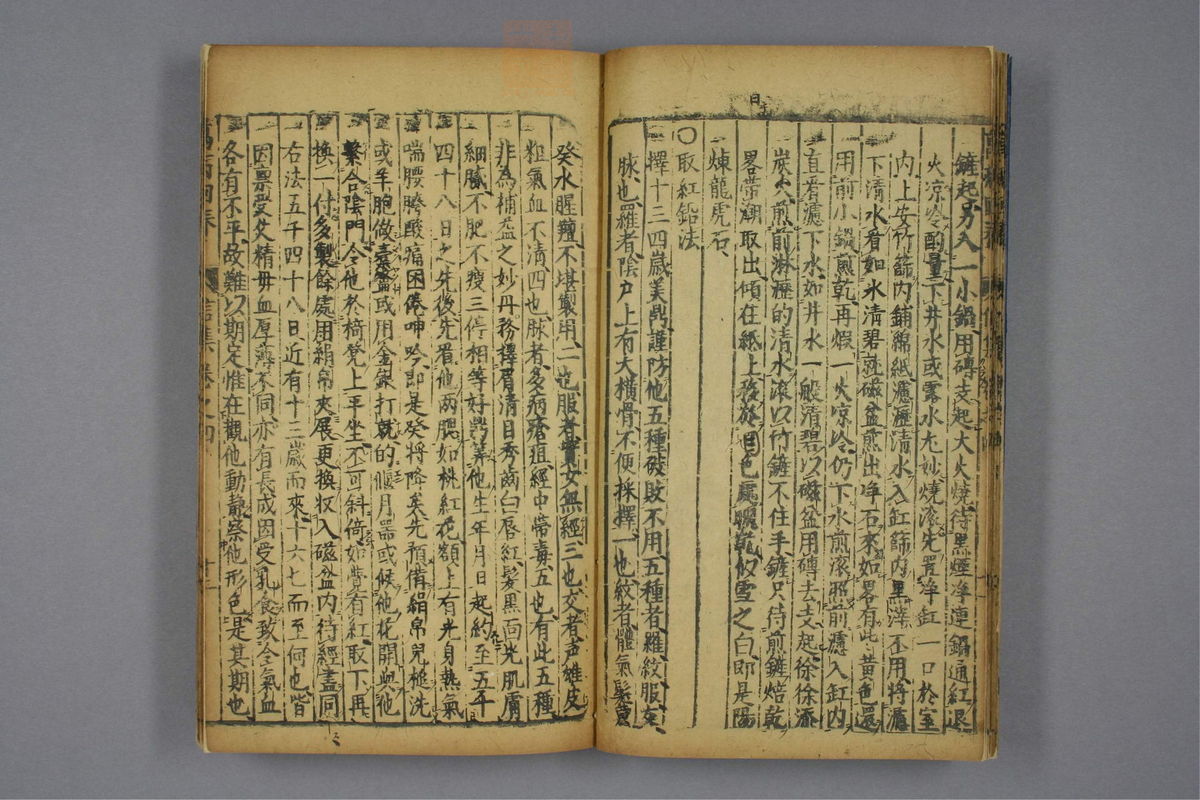 鏟起另入一小鍋用磚支起大火燒待黑煙淨連鍋通紅退
火凉冷酌量下井水或露水尤妙燒滾先置淨缸一口於室
內上安竹篩內鋪綿紙濾瀝清水入缸篩內黑滓不用將濾
下清水看如氷清碧就磁盆煎出淨石來如畧有些黃色還
用前小鍋煎乾再煅一火凉冷仍下水煎滾照前濾入缸內
直看濾下水如井水一般清碧以磁盆用磚去支起徐徐添
炭火煎前淋瀝的清水滾以竹鏟不住手鏟只待煎鏟焙乾
畧帶潮取出傾在紙上移於日色處曬乾似雪之白即是陽
煉龍虎石
〇取紅鉛法
擇十三四歲美鼎謹防他五種破敗不用五種者羅紋股交
脉也羅者陰户上有大橫骨不便採擇一也紋者體氣髮
癸水腥羶不堪製用二也股者實女無經三也交者声雄皮
粗氣血不清四也脉者多病瘡疽經中帶毒五也有此五種
非為補益之妙丹務擇眉清目秀齒白唇紅髮黑面光肌膚
細膩不肥不瘦三停相等好鼎筭他生年月日起約至五千
四十八日之先後先看他兩腮如桃紅花額上有光身熱氣
喘腰胯酸痛困倦呻吟即是癸將降矣先預備絹帛兒槌洗
或羊胞做橐籥或用金銀打就的偃月器或候他花開與他
繫合陰門令他於椅凳上平坐不可斜倚如覺有紅取下再
換一付多製餘處用絹帛夾展更換收入磁盆內待經盡同
右法五千四十八日近有十三歲而來十六七而至何也皆
因禀受父精母血厚薄不同亦有長成因受乳食致令氣血
各有不平故難以期定惟在觀他動靜察他形色是其期也